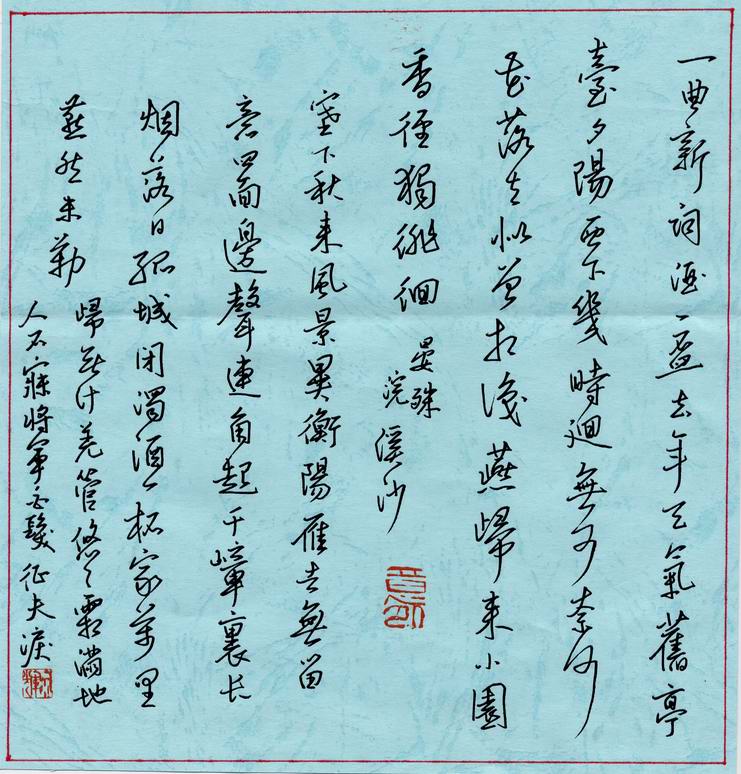 一曲新詞酒一盃去年天氣舊亭
臺夕陽西下幾時迴無可奈何
花落去似曾相識燕歸來小園
香徑獨徘徊
晏殊
浣溪沙
塞下秋來風景異衡陽雁去無留
意四面邊聲連角起千嶂裏長
烟落日孤城闭濁酒一杯家萬里
燕然未勒
歸無计羌管悠々霜滿地
人不寐將軍白髮征夫淚